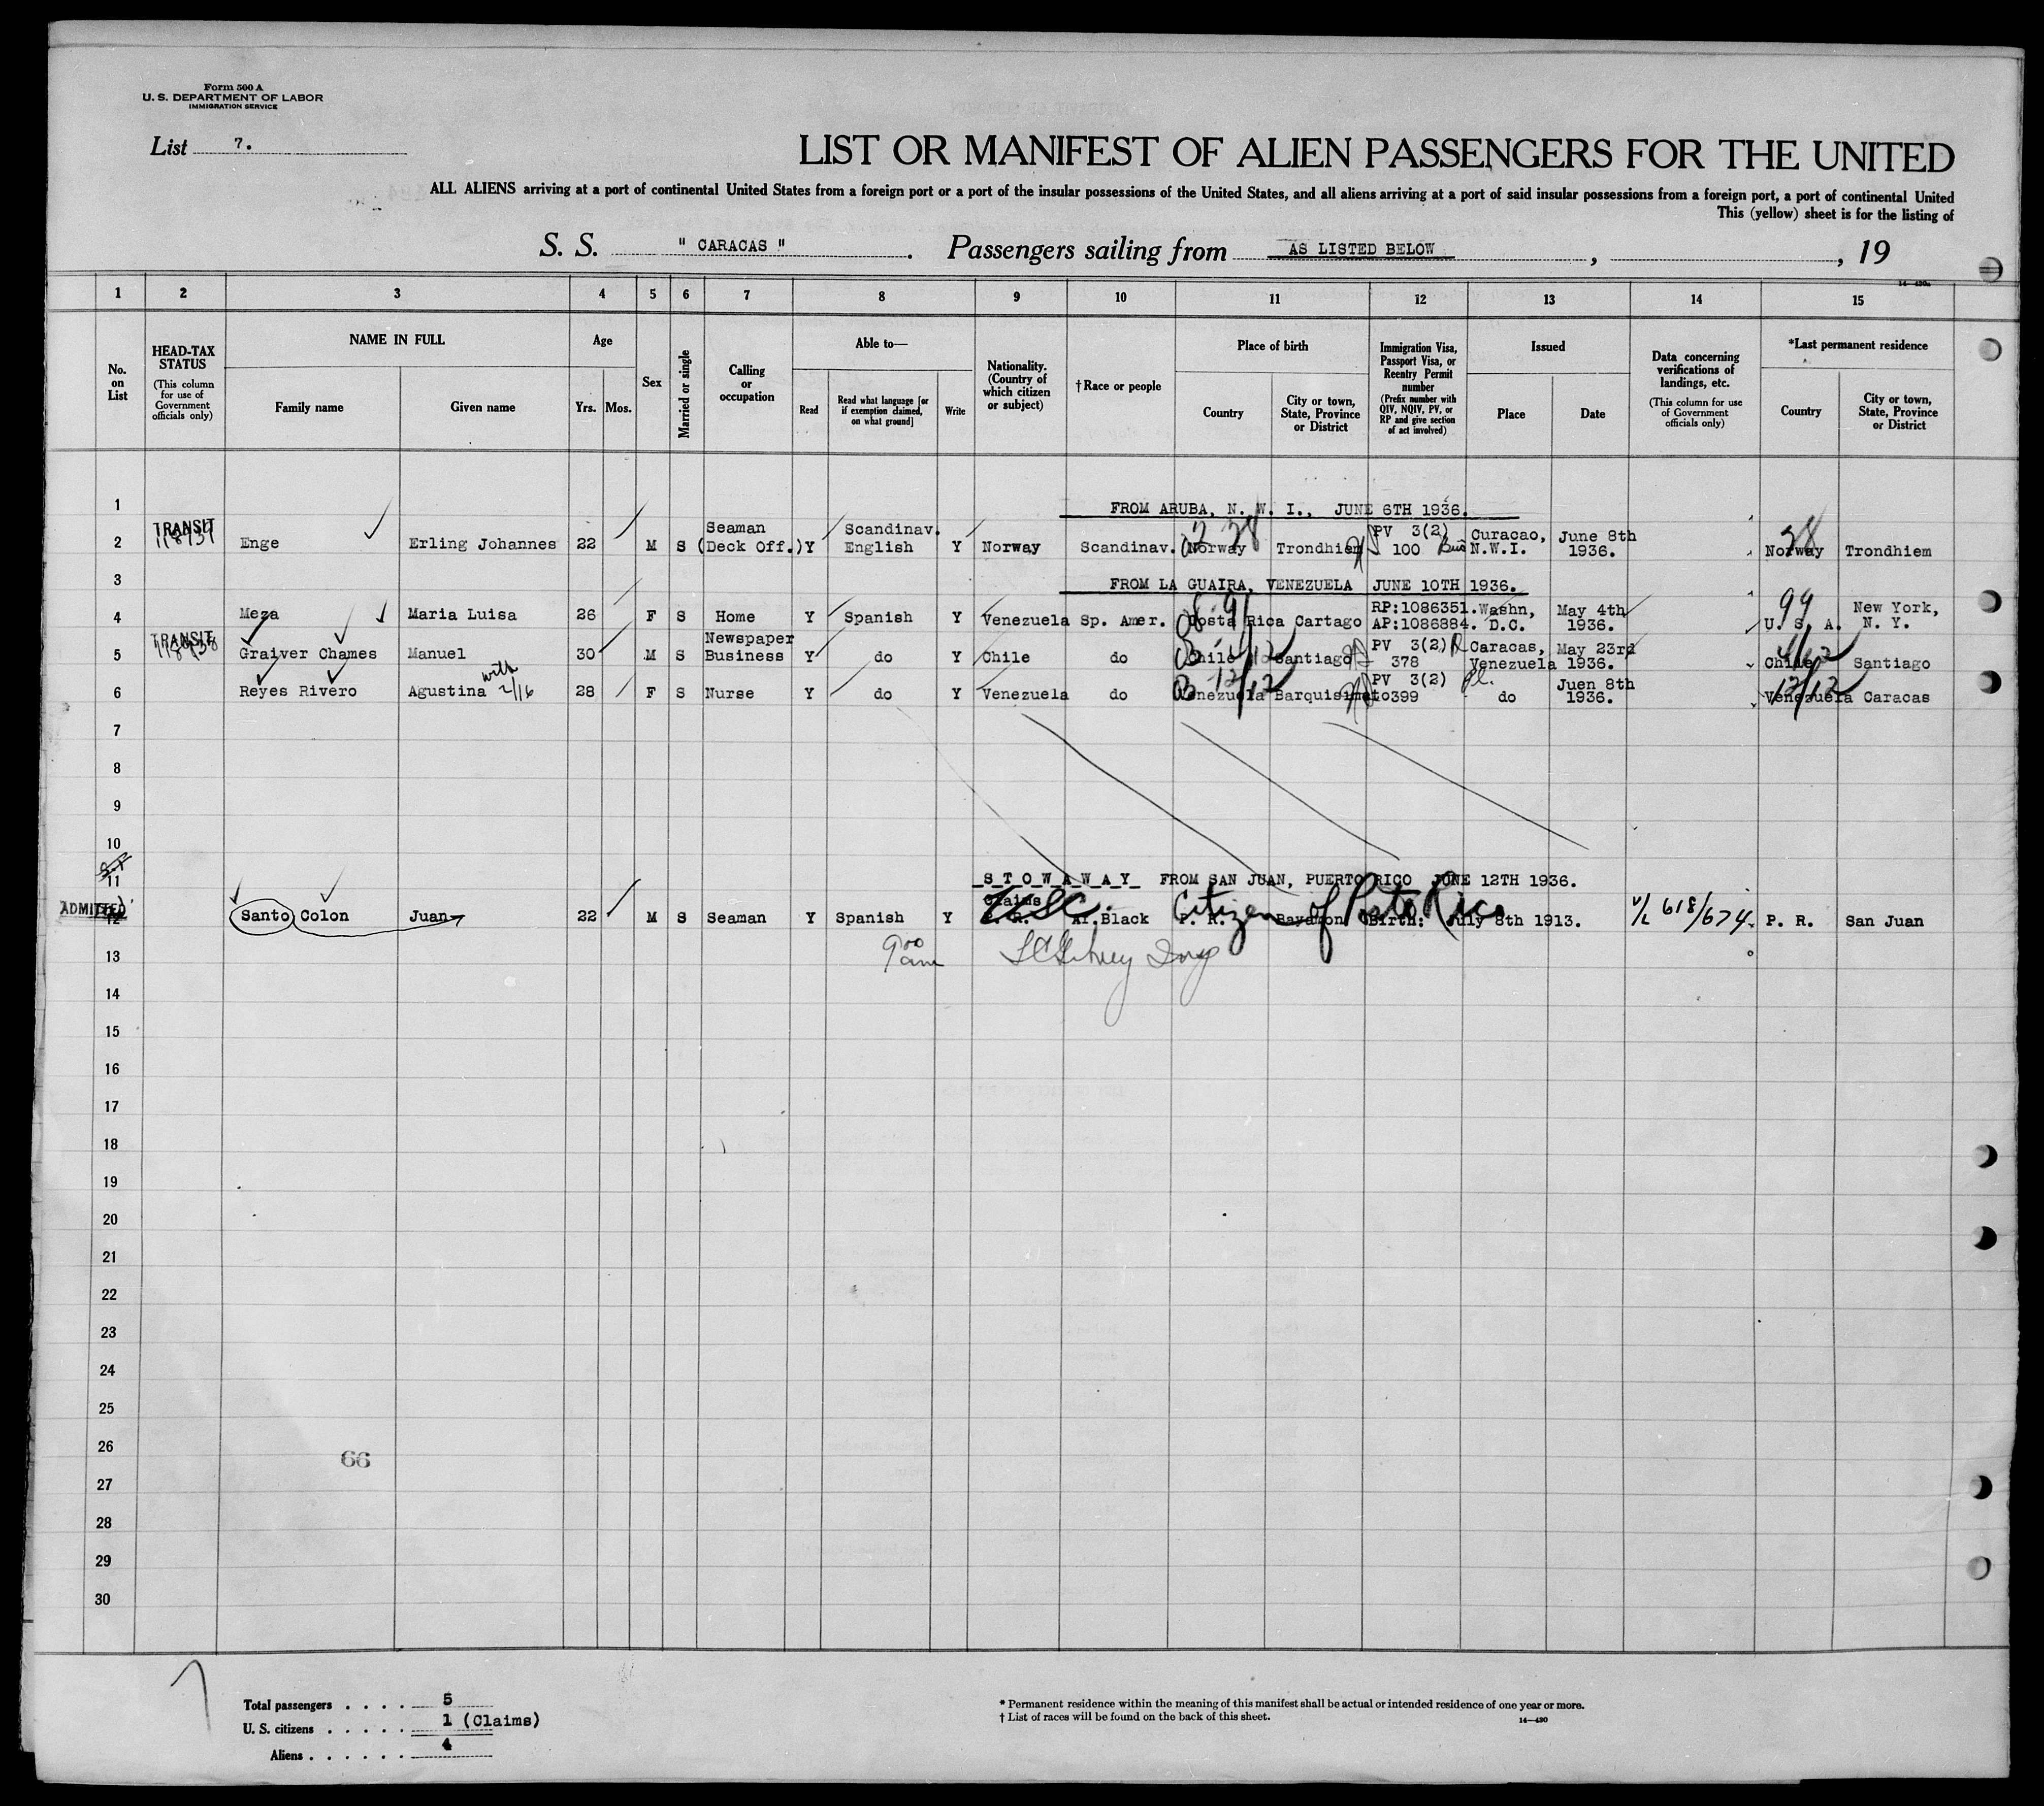 Form 500 A
U. S. DEPARTMENT OF LABOR
IMMIGRATION SERVICE
List 7.
LIST OR MANIFEST OF ALIEN PASSENGERS FOR THE UNITED
ALL ALIENS arriving at a port of continental United States from a foreign port or a port of the insular possessions of the United States, and all aliens arriving at a port of said insular possessions from a foreign port, a port of continental United
This (yellow) sheet is for the listing of
S. S. " CARACAS " . Passengers sailing from AS LISTED BELOW , , 19
1 2 3 4 5 6 7 8 9 10 11 12 13 14 15
No. on List
HEAD-TAX STATUS
(This column for use of Government officials only)
NAME IN FULL
Family name
Given name
Age
Yrs.
Mos.
Sex
Married or single
Calling or occupation
Able to—
Read
Read what language [or if exemption claimed, on what ground]
Write
Nationality. (Country of which citizen or subject)
†Race or people
Place of birth
Country
City or town, State, Province or District
Immigration Visa, Passport Visa, or Reentry Permit number
(Prefix number with QIV, NQIV, PV, or RP and give section of act involved)
Issued
Place
Date
Data concerning verifications of landings, etc.
(This column for use of Government officials only)
*Last permanent residence
Country
City or town, State, Province or District
1 FROM ARUBA, N. W. I., JUNE 6TH 1936.
TRANSIT 118937
2 Enge Erling Johannes 22 M S Seaman (Deck Off.) Y Scandinav. English Y Norway Scandinav. Norway Trondhiem PV 3(2) 100 Curacao, N.W.I. June 8th 1936. Norway Trondhiem
3 FROM LA GUAIRA, VENEZUELA JUNE 10TH 1936.
4 Meza Maria Luisa 26 F S Home Y Spanish Y Venezuela Sp. Amer. Costa Rica Cartago RP:1086351. AP:1086884. Washn, D.C. May 4th 1936. 99 U. S. A. New York, N. Y.
TRANSIT 118938
5 Graiver Chames Manuel 30 M S Newspaper Business Y do Y Chile do Chile Santiago PV 3(2) 378 Caracas, Venezuela May 23rd 1936. Chile Santiago
6 Reyes Rivero Agustina with 2/16 28 F S Nurse Y do Y Venezuela do Venezuela Barquisimeto PV 3(2) 399 do Juen 8th 1936. 12/12 Venezuela Caracas
7
8
9
10
11 S T O W A W A Y FROM SAN JUAN, PUERTO RICO JUNE 12TH 1936.
ADMITTED
12 Santo Colon Juan 22 M S Seaman Y Spanish Y Claims P. R. USC. Af.Black P. R. Bayamon Birth: July 8th 1913. Citizen of Porto Rico V/L 618/674 P. R. San Juan
13 9 00 am
14
15
16
17
18
19
20
21
22
23
24
25
26
66
27
28
29
30
Total passengers . . . . 5
U. S. citizens . . . . . 1 (Claims)
Aliens . . . . . . 4
* Permanent residence within the meaning of this manifest shall be actual or intended residence of one year or more.
† List of races will be found on the back of this sheet.
14—430